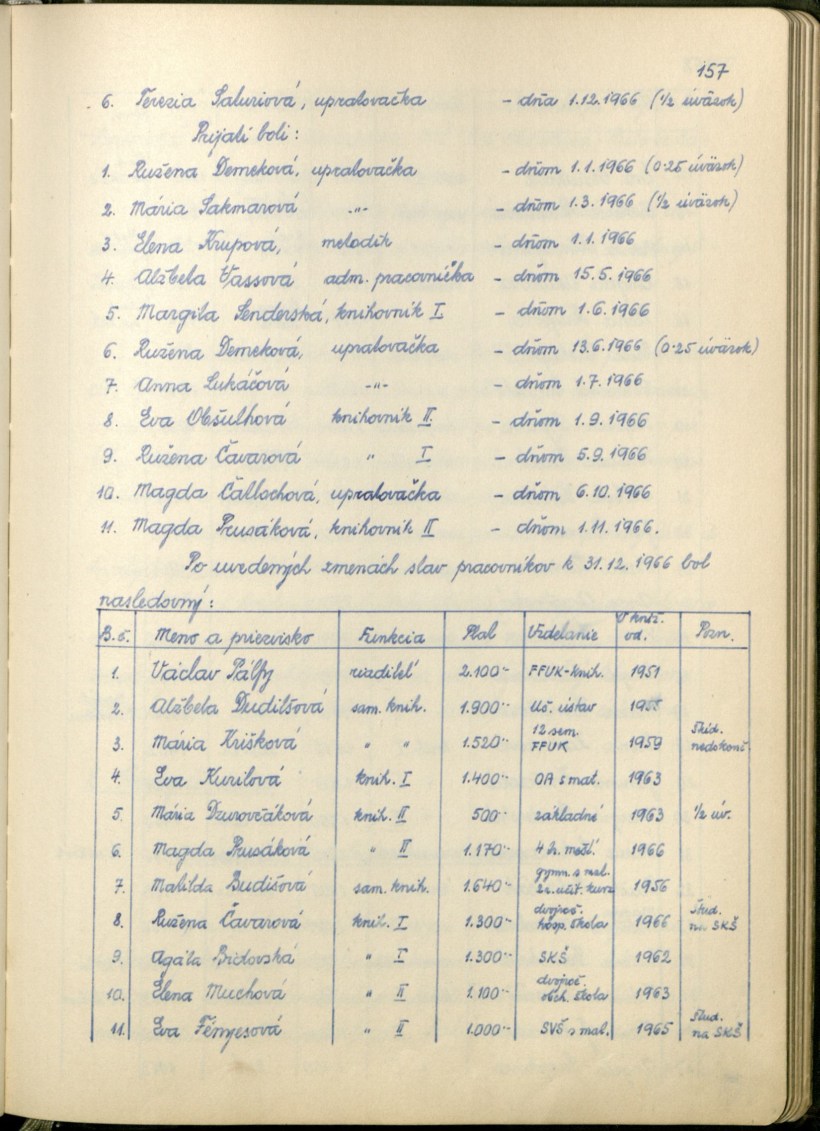 157
6. Terezia Saluriová, upratovačka - dňa 1.12.1966 (1/2 úväzok)
Prijatí boli:
1. Ružena Demeková, upratovačka - dňom 1.1.1966 (0.25 úväzok)
2. Mária Sakmarová -"- - dňom 1.3.1966 (1/2 úväzok)
3. Elena Krupová, metodik - dňom 1.1.1966
4. Alžbeta Vassová adm. pracovníčka - dňom 15.5.1966
5. Margita Senderská, knihovník I - dňom 1.6.1966
6. Ružena Demeková, upratovačka - dňom 13.6.1966 (0.25 úväzok)
7. Anna Lukáčová -"- - dňom 1.7.1966
8. Eva Obšuthová knihovník II - dňom 1.9.1966
9. Ružena Čavarová " I - dňom 5.9.1966
10. Magda Čallochová, upratovačka - dňom 6.10.1966
11. Magda Prusáková, knihovník II - dňom 1.11.1966.
Po uvedených zmenách stav pracovníkov k 31.12.1966 bol
nasledovný:
B.č. Meno a priezvisko Funkcia Plat Vzdelanie V kniž. od. Pozn.
1. Václav Pálfy riaditeľ 2.100-- FFUK-knih. 1951
2. Alžbeta Dudišová sam. knih. 1.900-- Uč. ústav
3. Mária Krišková " " 1.520-- 12 sem. FFUK 1959 Štúd. nedokonč.
4. Eva Kurilová knih. I 1.400-- OA s mat. 1963
5. Mária Dzurovčáková knih. II 500-- základné 1963 1/2 úv.
6. Magda Prusáková " II 1.170-- 1966
7. Matilda Budišová sam. knih. 1.640-- gymn. s mat. učit. kurz 1956
8. Ružena Čavarová knih. I 1.300-- dvojroč. hosp. škola 1966 Štud. na SKŠ
9. Agáta Brdovská " I 1.300-- SKŠ 1962
10. Elena Muchová " II 1.100-- dvojroč. obch. škola 1963
11. Eva Fényesová " II 1.000-- SVŠ s mat. 1965 Štud. na SKŠ